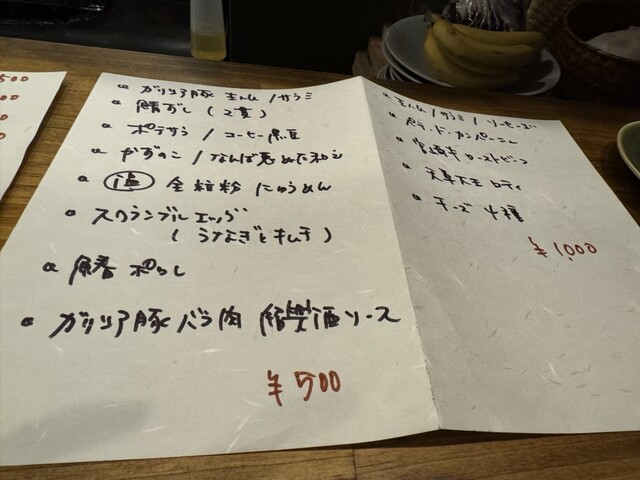 500
ガリシア豚 生ハム / サラミ
鯖ずし (2貫)
ポテサラ / コーヒー黒豆
かずのこ / なんば
温 全粒粉 にゅうめん
スクランブルエッグ
( うなぎとキムチ )
ガリシア豚 バラ肉 酒ソース
¥500
生ハム / サラミ / ソーセージ
パテ・ド・カンパーニュ
ローストビーフ
天草大王 ロティ
チーズ 4種
¥1,000